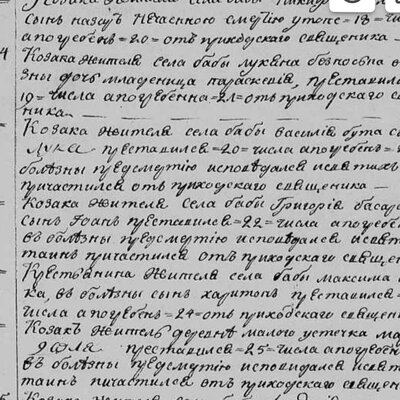 сынъ назаръ нечаянною смертию утопе =18= числа
а погребенъ =20= отъ приходского священника —
4
Козака жителя села бабы лукьяна безпоясна
зны дочь младеница параскевия, преставилась
19= числа а погребенна =21= отъ приходского
ника —
Козака жителя села бабы василия бута
лука преставился =20= числа а погребенъ =
болѣзны предсмертию исповѣдался и святыхъ
причастился отъ приходского священика —
Козака жителя села бабы григория
сынъ Іоанъ преставился =22= числа а погребенъ
въ болѣзны предсмертию исповѣдался и святы
таинъ причастился отъ приходского священ
Крестянина жителя села бабы максима
ка, въ болѣзны сынъ харитонъ преставился =
числа а погребенъ =24= отъ приходского священ
Козакъ житель деревнѣ малого устечка
преставился =25= числа а погребенъ
въ болѣзны предсмертию исповѣдался и святы
таинъ пичастился отъ приходского священ
5